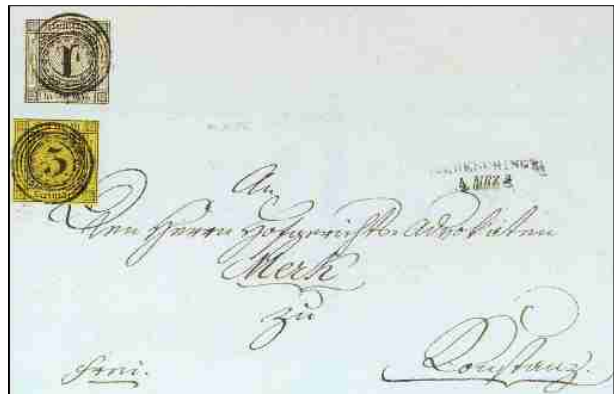 1
3
4 MRZ
An
Den Herrn Hofgerichts-Advokaten
Merk
zu
frei.
Constanz.